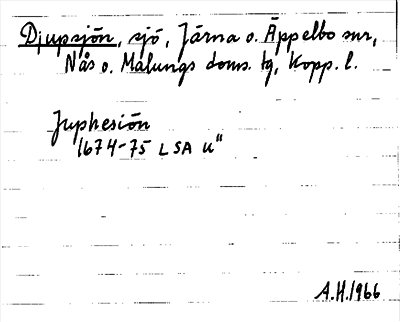 Djupsjön, sjö, Järna o. Äppelbo snr,
Nås o. Malungs doms. tg, Kopp. l.
Juphesiön
1674-75 LSA U"
A.H. 1966